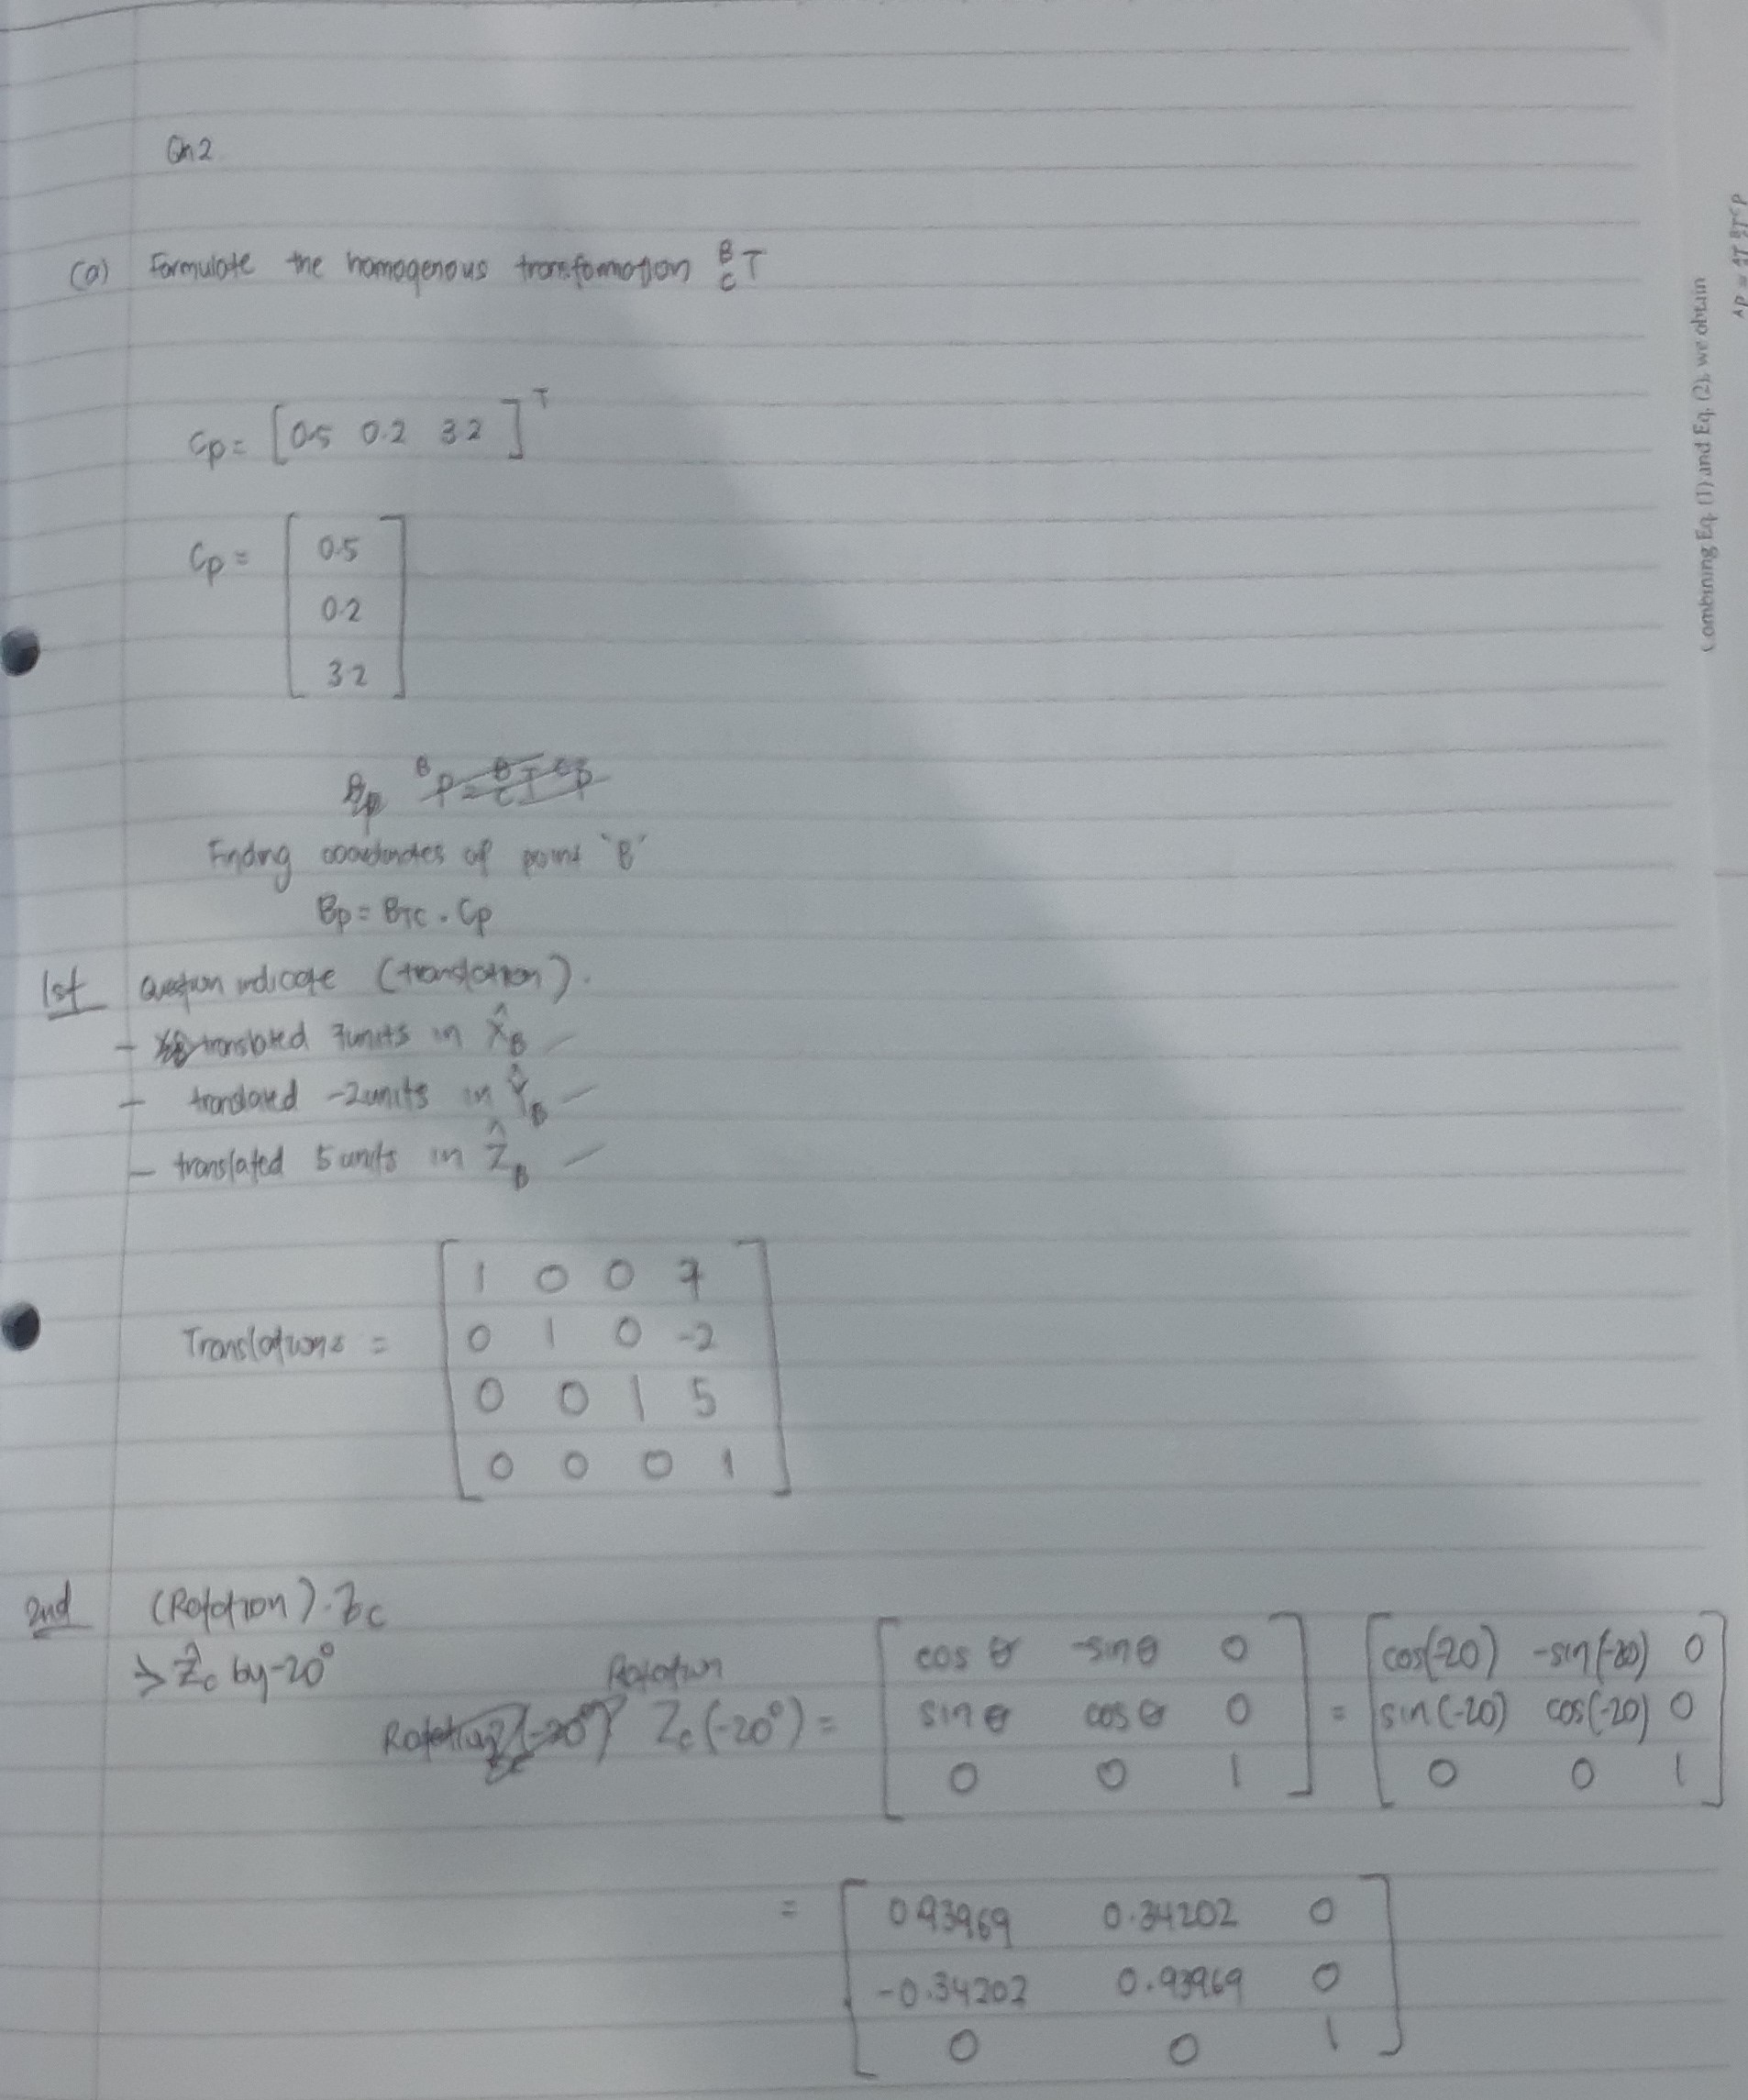 Qn 2
(a) Formulate the homogenous transformation B C T
Cp = [0.5 0.2 3.2]ᵀ
Cp = [
0.5
0.2
3.2
]
Bp ᴮP = B C T Cp
Finding coordinates of point 'B'
Bp = BTC . Cp
1st question indicate (translation).
- translated 7units in X̂B
- translated -2units in ŶB
- translated 5 units in ẐB
Translations = [
1 0 0 7
0 1 0 -2
0 0 1 5
0 0 0 1
]
2nd (Rotation). Zc
> Ẑc by -20°
Rotation
Rotation (-20°) Zc (-20°) = [
cos θ -sin θ 0
sin θ cos θ 0
0 0 1
] = [
cos(-20) -sin(-20) 0
sin(-20) cos(-20) 0
0 0 1
]
= [
0.93969 0.34202 0
-0.34202 0.93969 0
0 0 1
]
Combining Eq. (1) and Eq. (2), we obtain